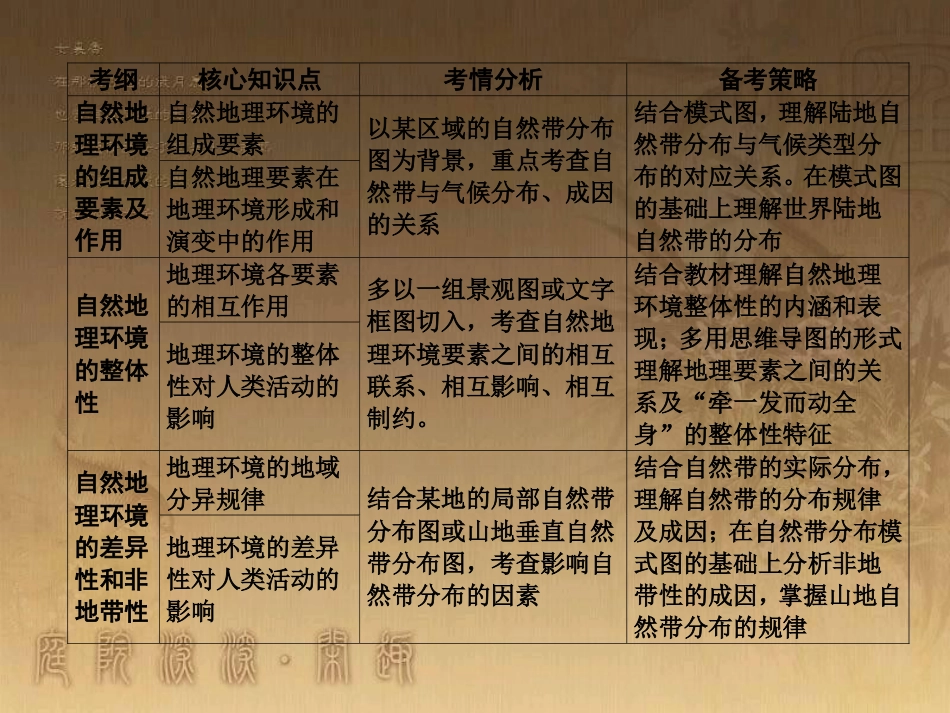 考纲 核心知识点 考情分析 备考策略
自然地
理环境
的组成
要素及
作用
自然地理环境的
组成要素
自然地理要素在
地理环境形成和
演变中的作用
以某区域的自然带分布
图为背景，重点考查自
然带与气候分布、成因
的关系
结合模式图，理解陆地自
然带分布与气候类型分
布的对应关系。在模式图
的基础上理解世界陆地
自然带的分布
自然地
理环境
的整体
性
地理环境各要素
的相互作用
地理环境的整体
性对人类活动的
影响
多以一组景观图或文字
框图切入，考查自然地
理环境要素之间的相互
联系、相互影响、相互
制约。
结合教材理解自然地理
环境整体性的内涵和表
现；多用思维导图的形式
理解地理要素之间的关
系及“牵一发而动全
身”的整体性特征
自然地
理环境
的差异
性和非
地带性
地理环境的地域
分异规律
地理环境的差异
性对人类活动的
影响
结合某地的局部自然带
分布图或山地垂直自然
带分布图，考查影响自
然带分布的因素
结合自然带的实际分布，
理解自然带的分布规律
及成因；在自然带分布模
式图的基础上分析非地
带性的成因，掌握山地自
然带分布的规律
庭院深深·闲趣